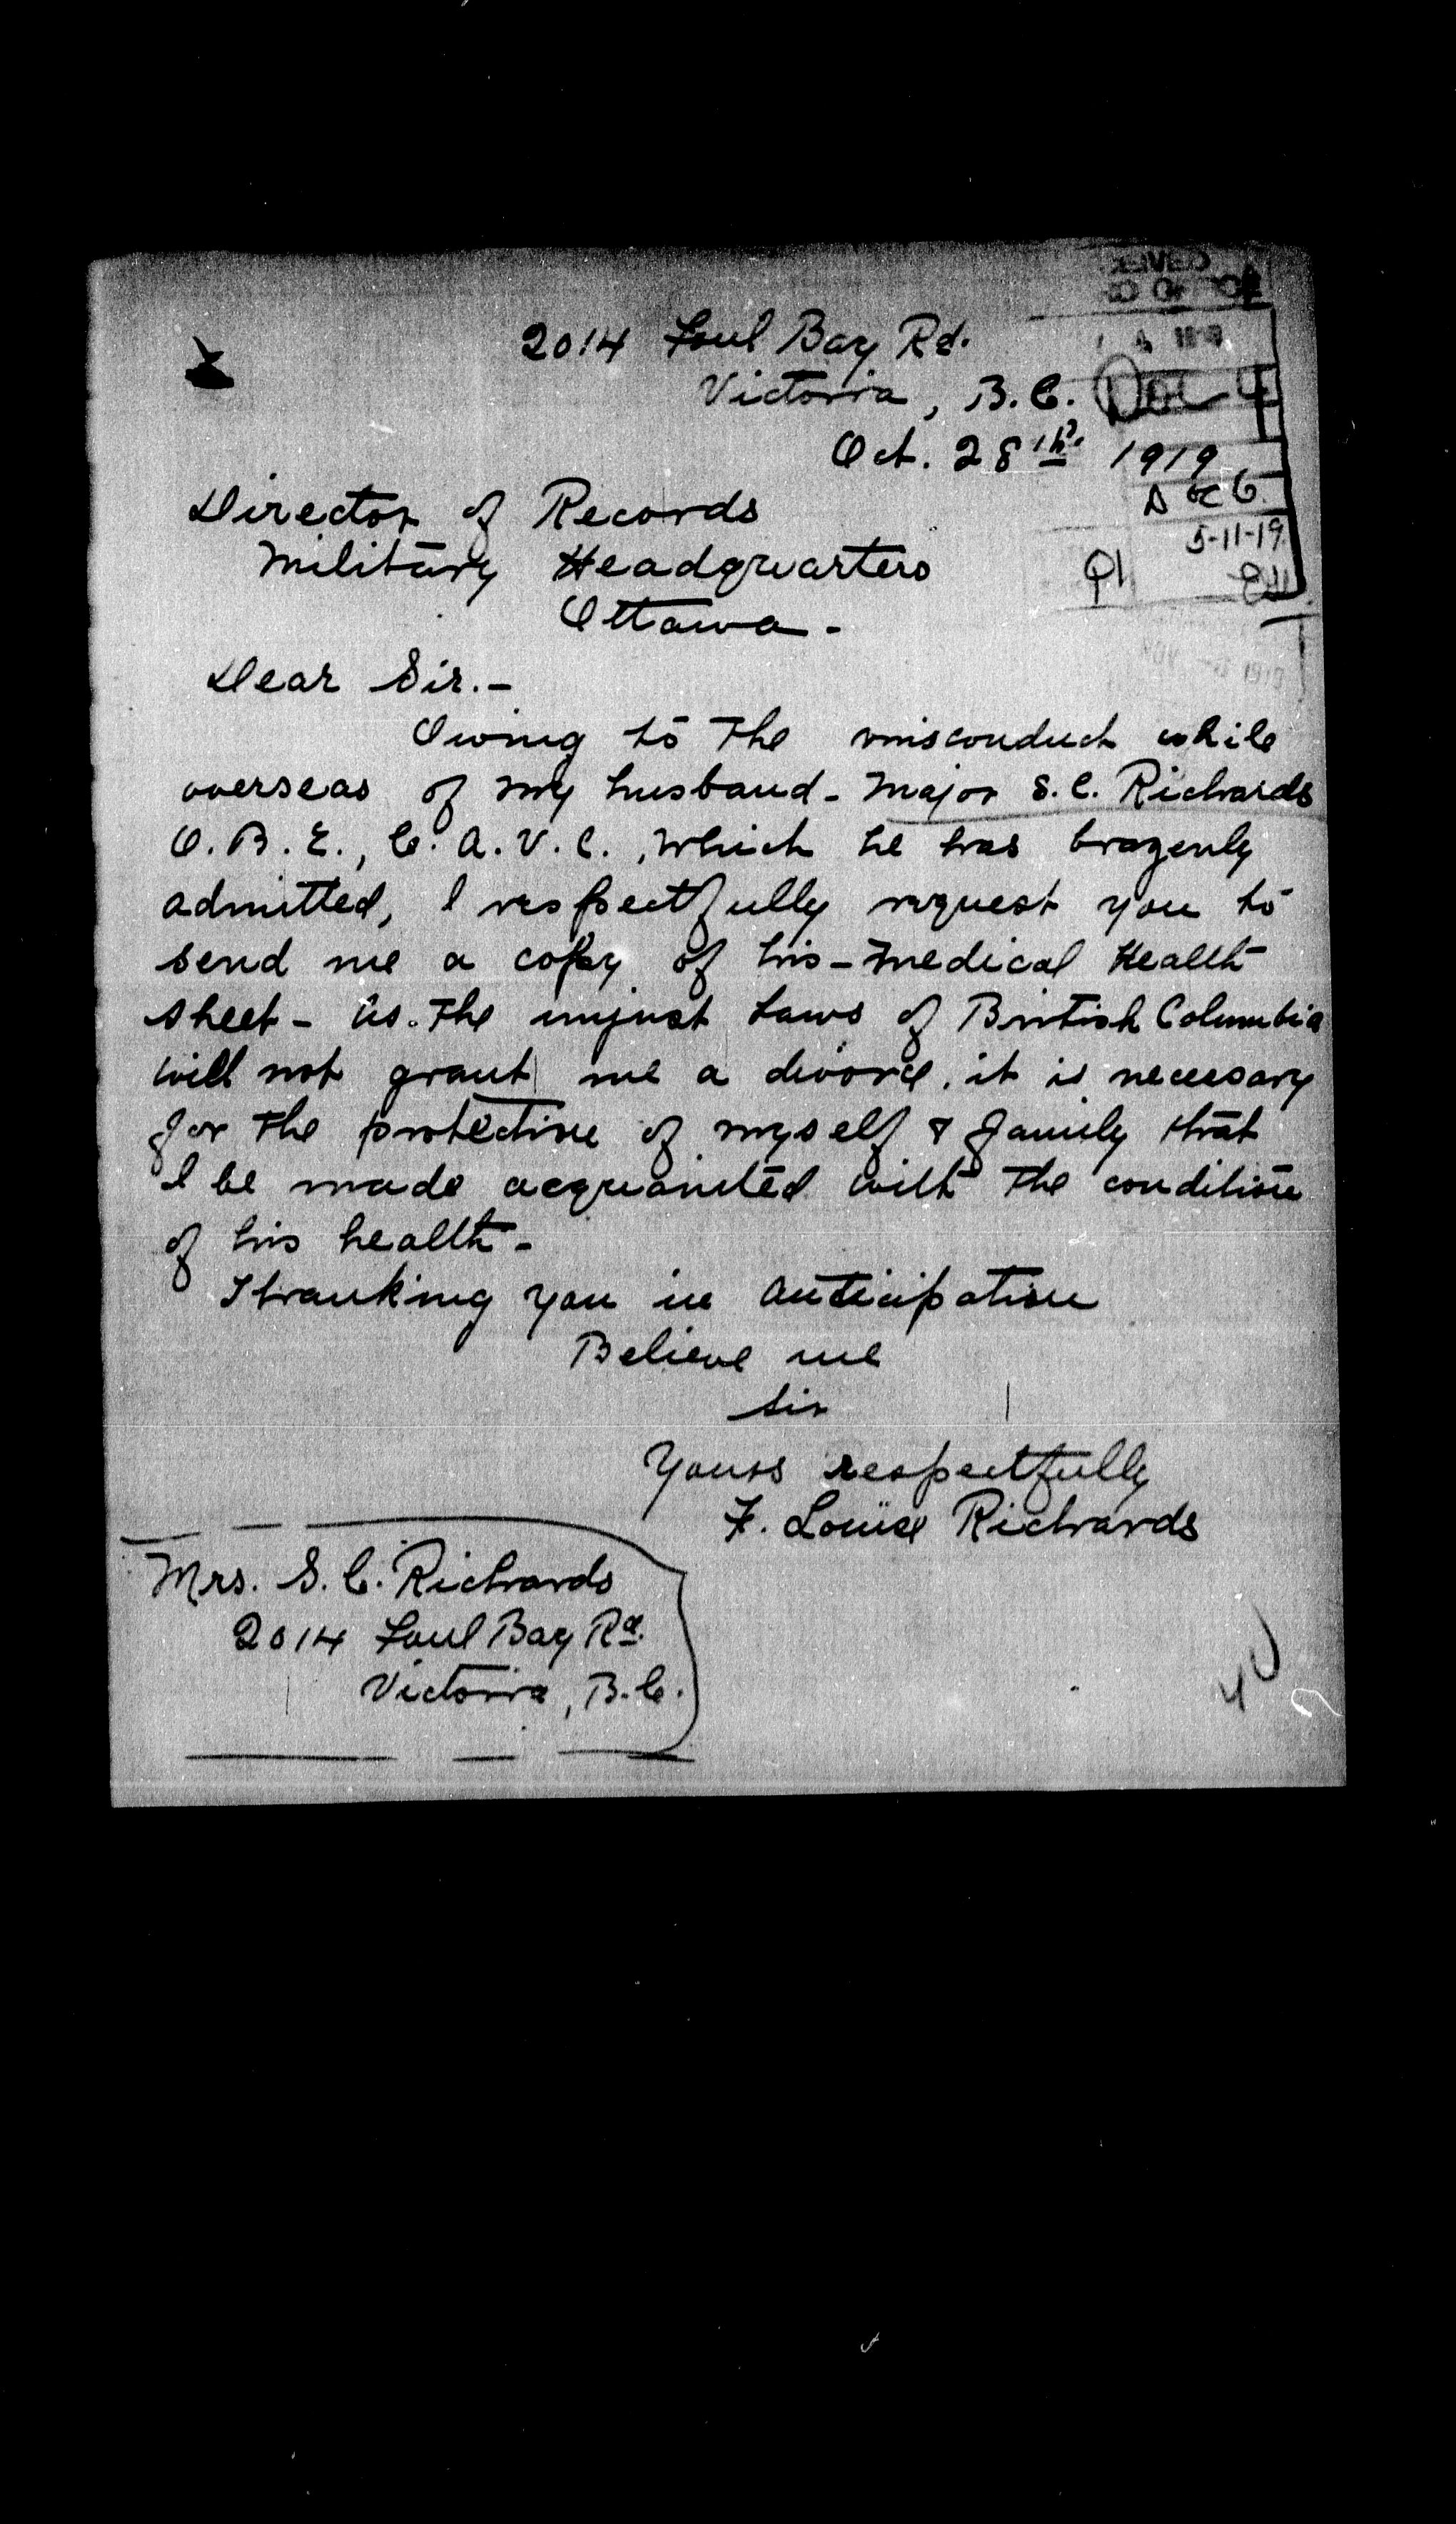 2014 Foul Bay Rd.
Victoria, B.C.
Oct. 28th. 1919
5-11-19
Director of Records
Military Headquarters
Ottawa -
Dear Sir.-
Owing to the misconduct while
overseas of my husband - Major S.C. Richards
O.B.E., C.A.V.C., which he has brazenly
admitted, I respectfully request you to
send me a copy of his - Medical Health
Sheet - As the unjust Laws of British Columbia
will not grant me a divorce, it is necessary
for the protection of myself & family that
I be made acquainted with the condition
of his health -
Thanking you in anticipation
Believe me
Sir
Yours respectfully
F. Louise Richards
Mrs. S.C. Richards
2014 Foul Bay Rd.
Victoria, B.C.